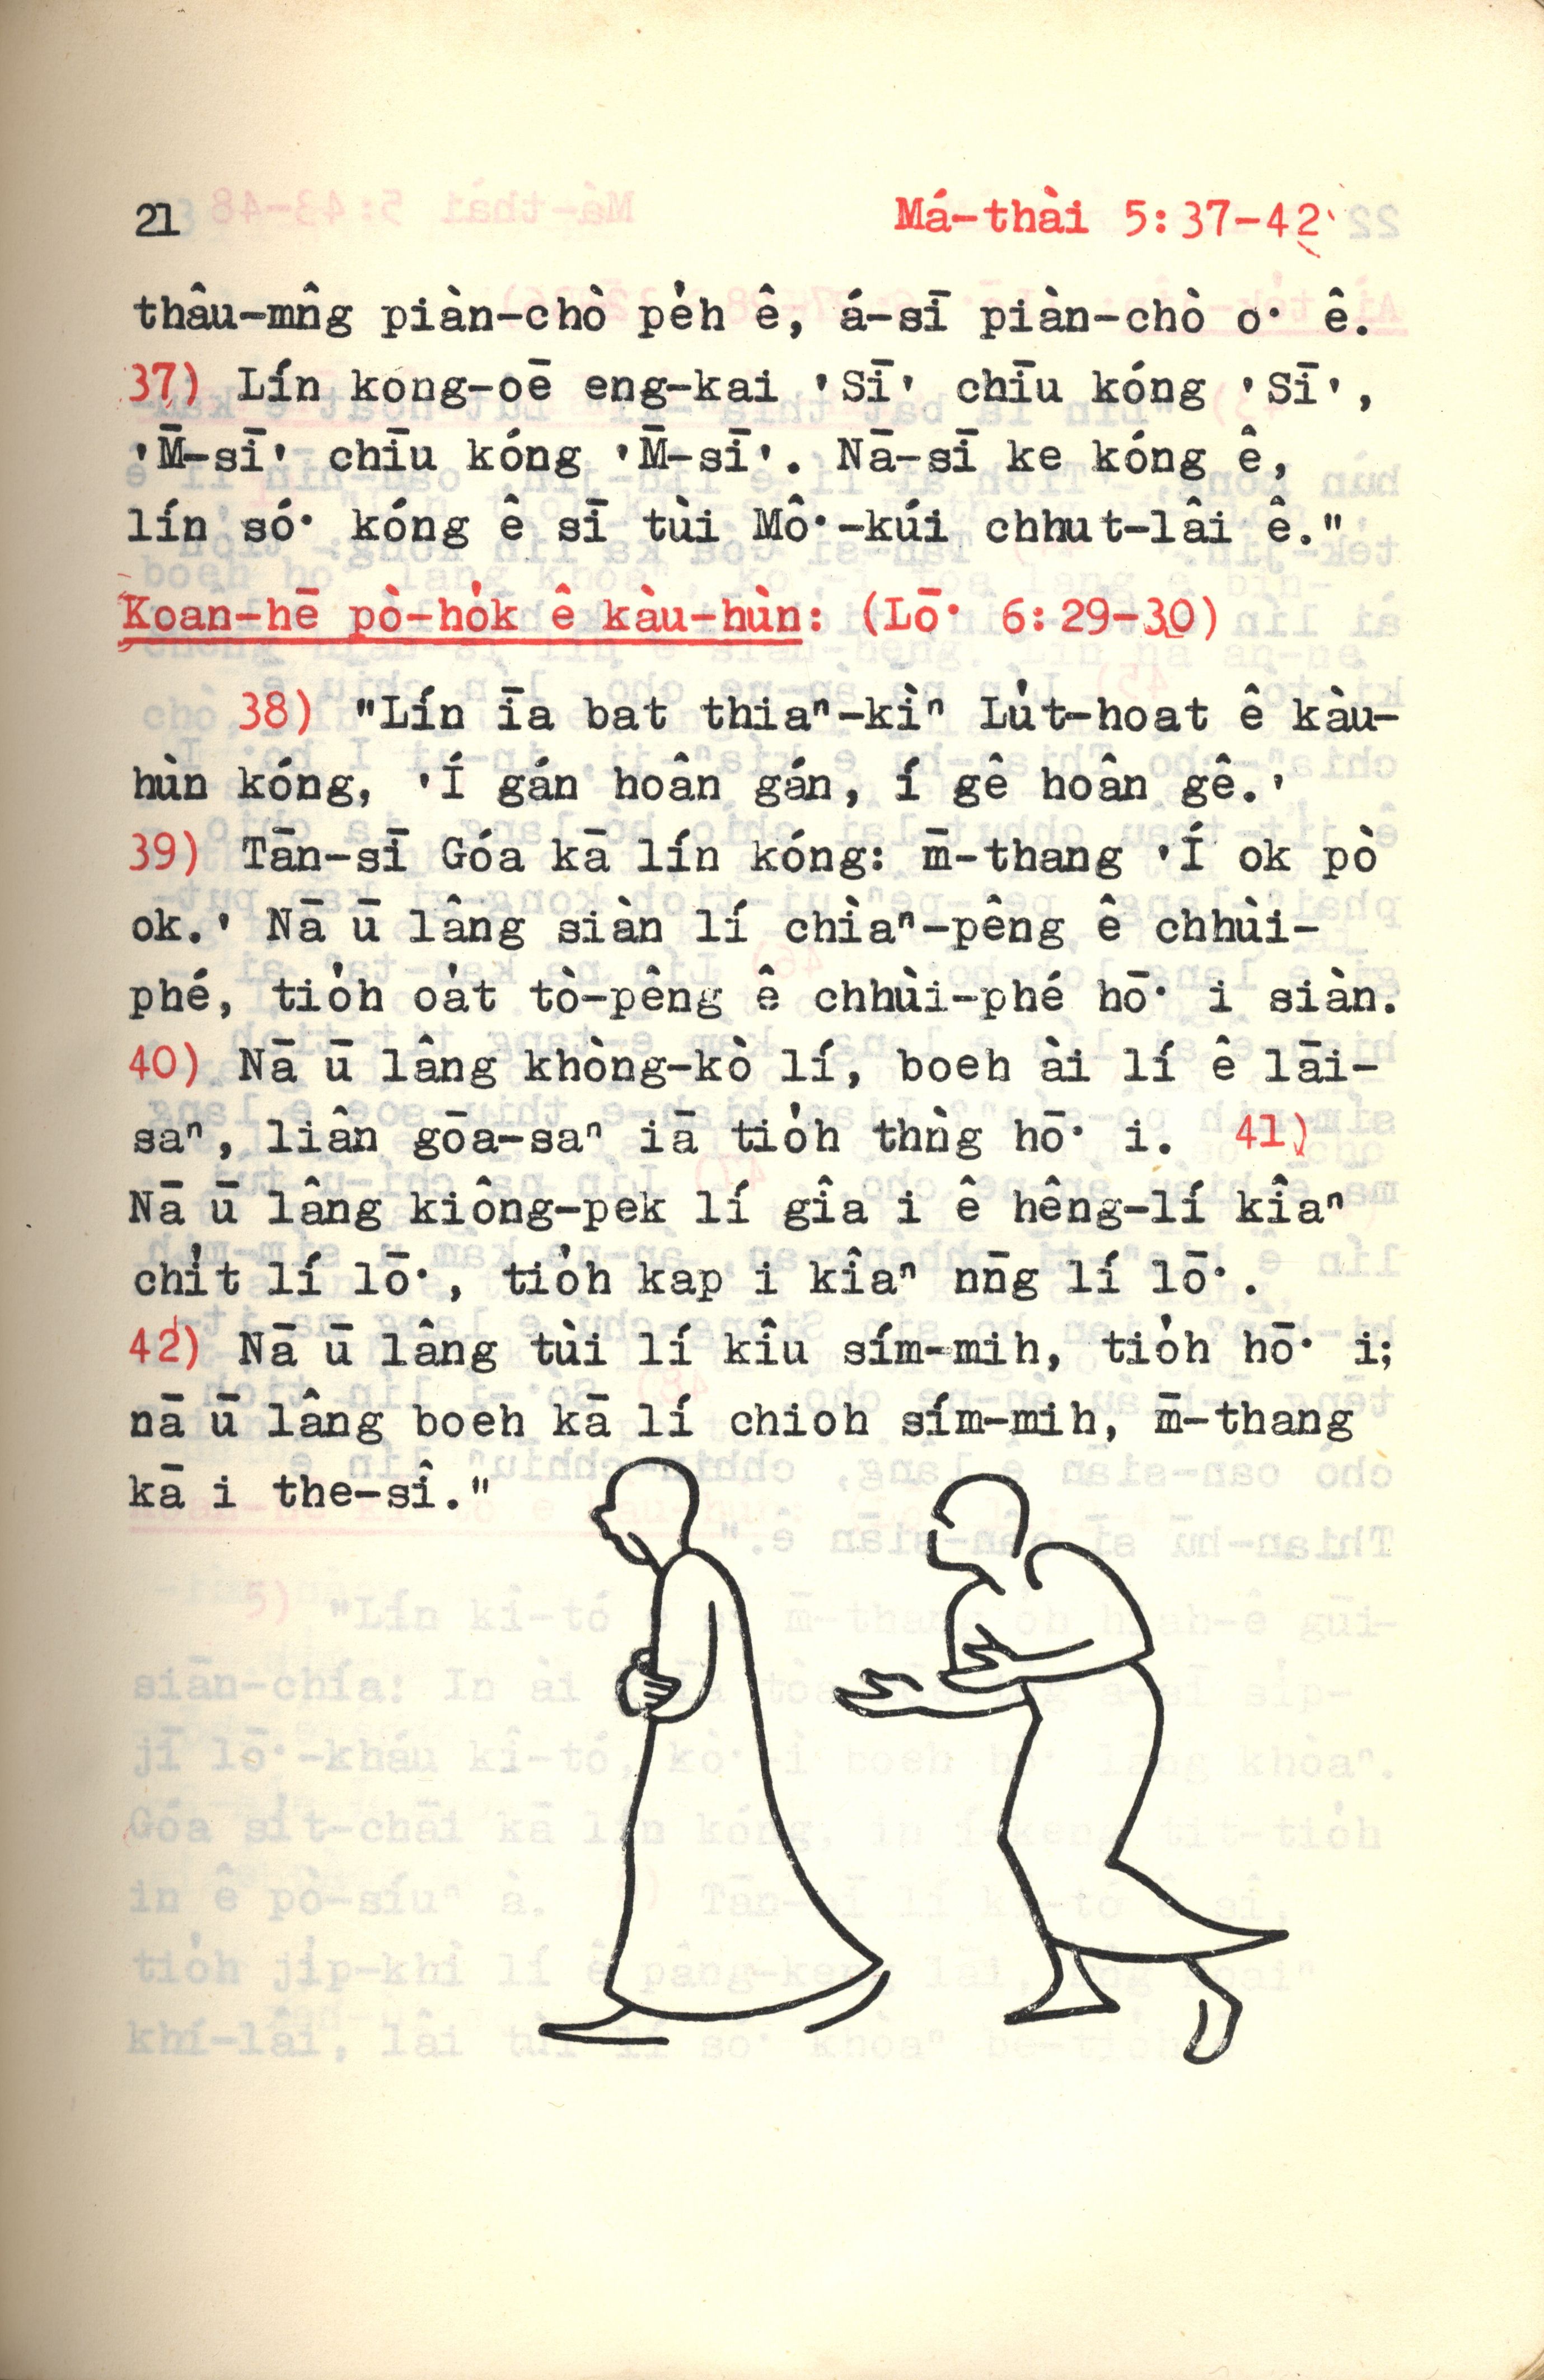 21 Má-thài 5:37-42
thâu-mn̂g piàn-chò pe̍h ê, á-sī piàn-chò o͘ ê.
37) Lín kóng-oē eng-kai 'Sī' chīu kóng 'Sī',
'M̄-sī' chīu kóng 'M̄-sī'. Nā-sī ke kóng ê,
lín só͘ kóng ê sī tùi Mô͘-kúi chhut-lâi ê."
Koan-hē pò-ho̍k ê kàu-hùn: (Lō͘ 6:29-30)
38) "Lín īa bat thiaⁿ-kìⁿ Lu̍t-hoat ê kàu-
hùn kóng, 'Í gán hoân gán, í gê hoân gê.'
39) Tān-sī Góa kā lín kóng: m̄-thang 'Í ok pò
ok.' Nā ū lâng siàn lí chìaⁿ-pêng ê chhùi-
phé, tio̍h oa̍t tò-pêng ê chhùi-phé hō͘ i siàn.
40) Nā ū lâng khòng-kò lí, boeh ài lí ê lāi-
saⁿ, liân gōa-saⁿ iā tio̍h thǹg hō͘ i. 41)
Nā ū lâng kiông-pek lí gîa i ê hêng-lí kîaⁿ
chi̍t lí lō͘, tio̍h kap i kîaⁿ nn̄g lí lō͘.
42) Nā ū lâng tùi lí kîu sím-mih, tio̍h hō͘ i;
nā ū lâng boeh kā lí chioh sím-mih, m̄-thang
kā i the-sî."